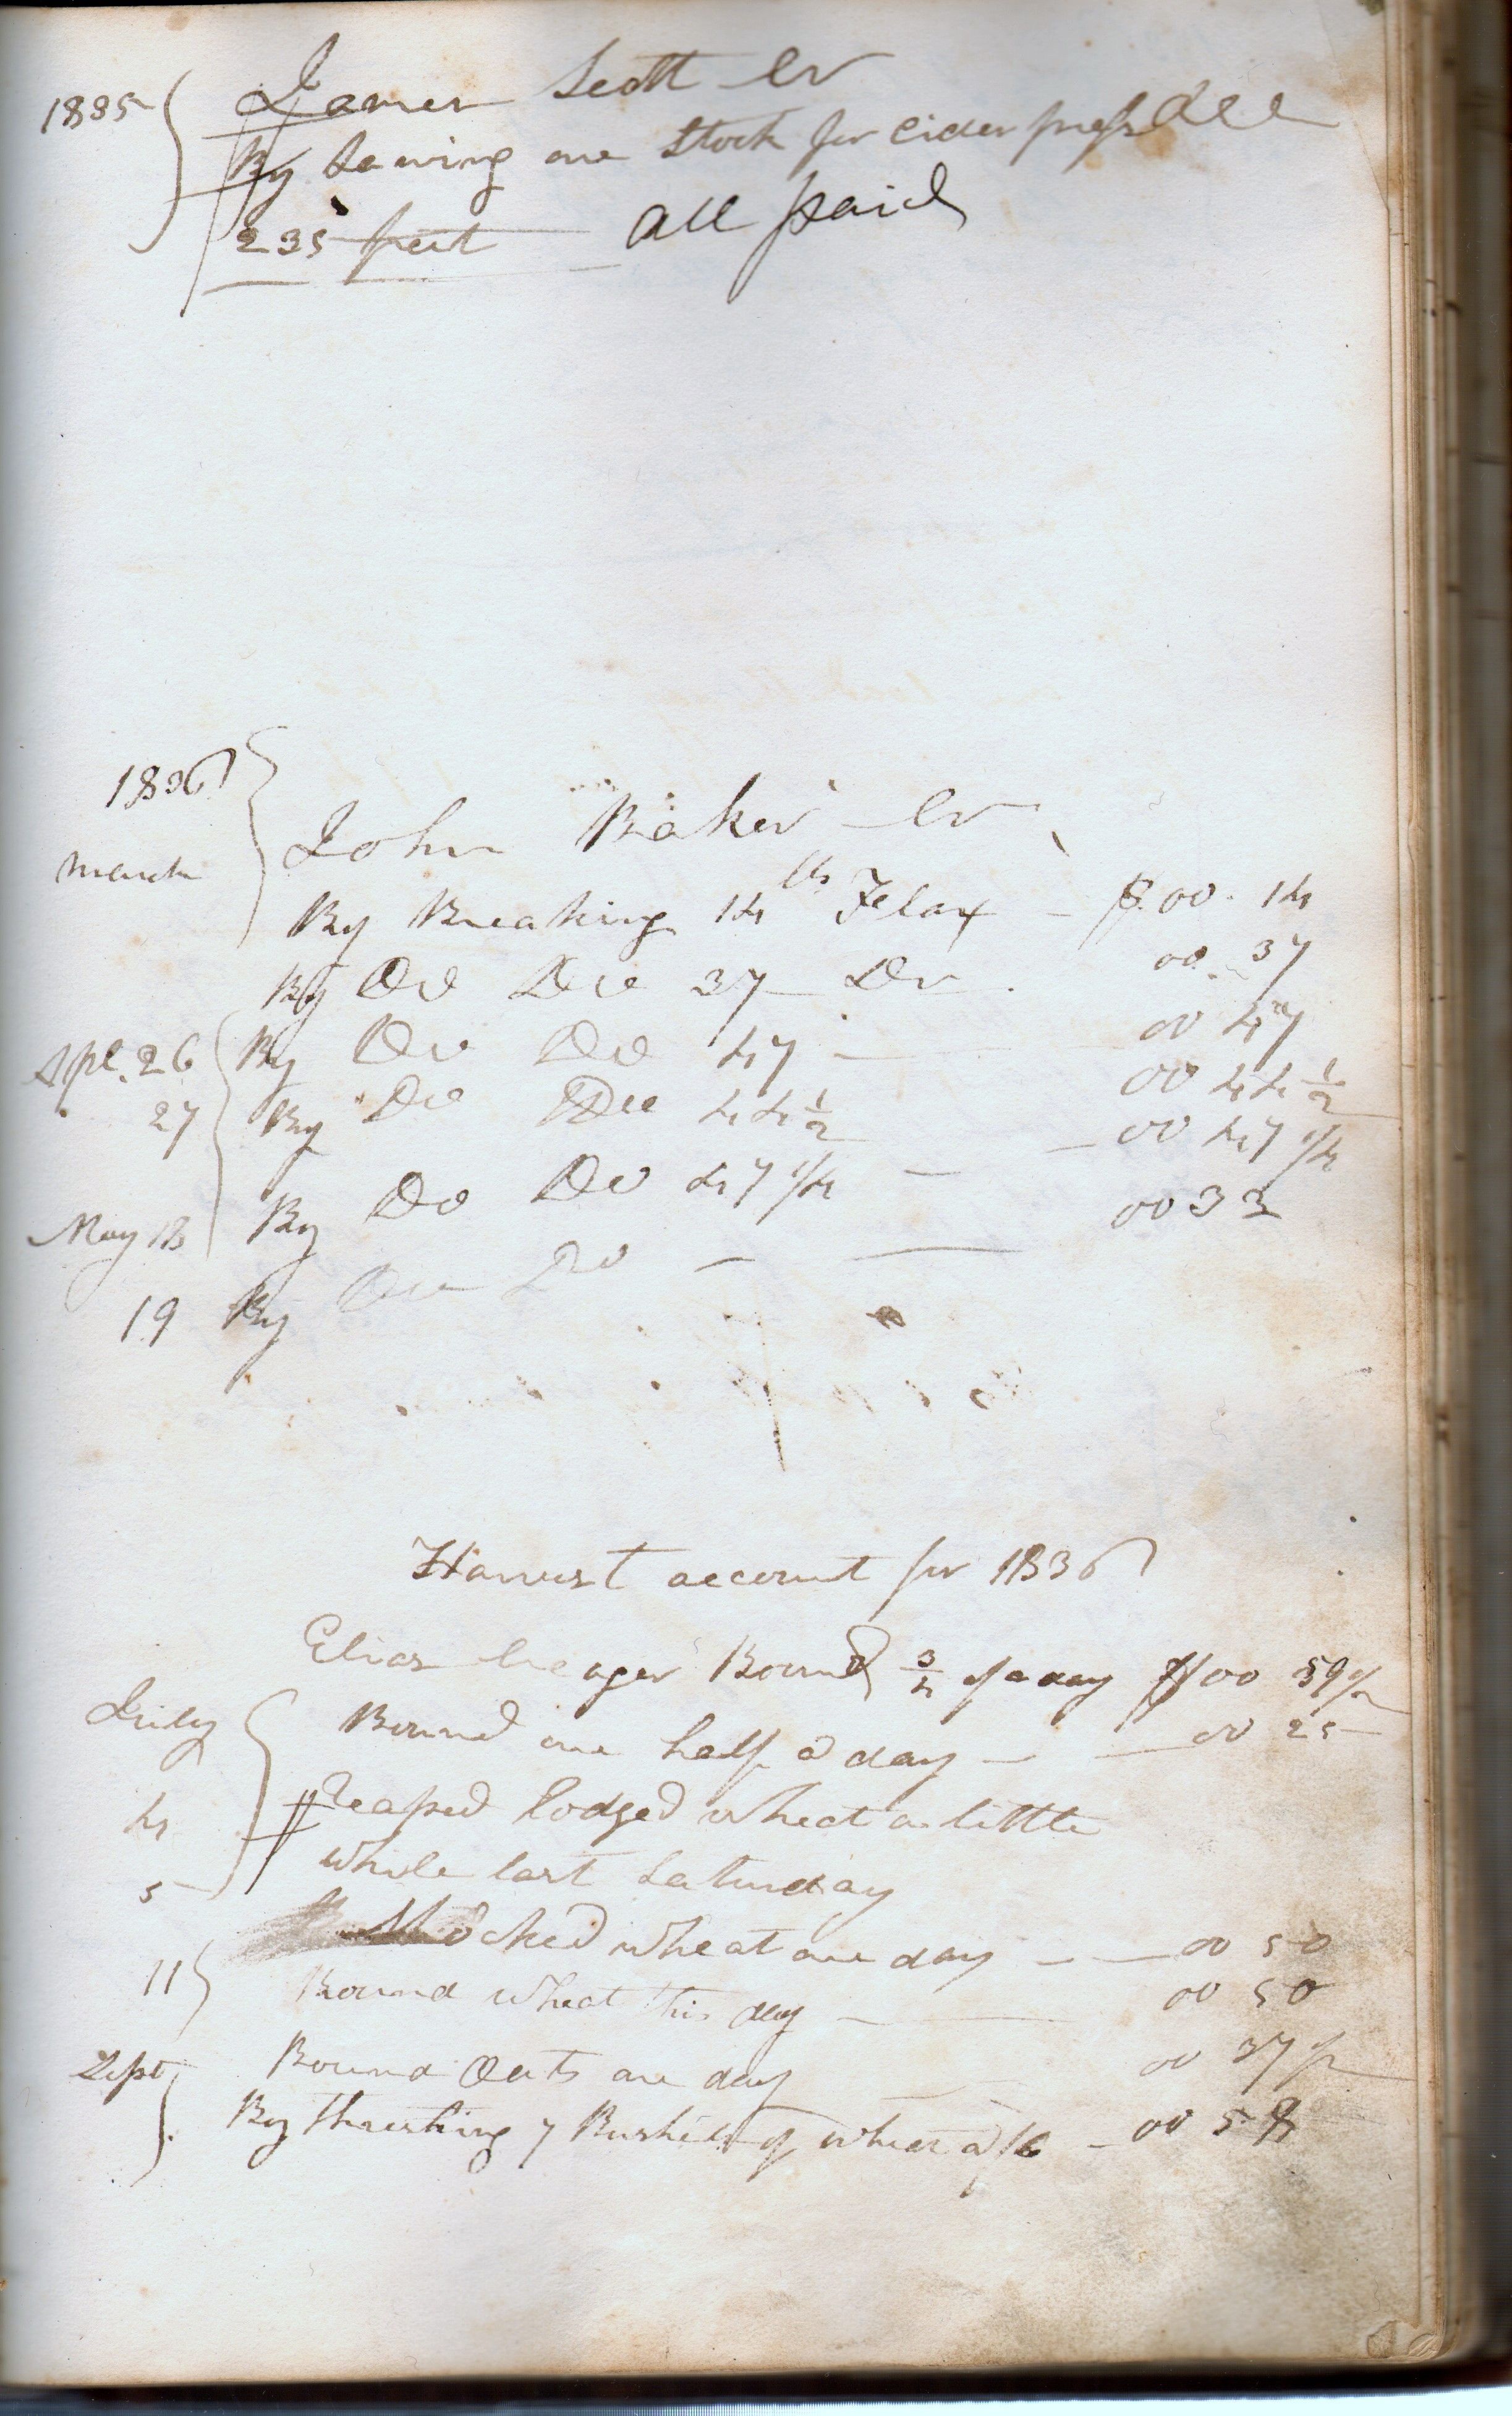 1835 James Scott Cr
By Sawing one Stock for Cider press
235 feet all paid
1836
John Baker Cr
March
By Breaking 14 lbs Felax - $ 00. 14
By Do Do 37 Do. 00. 37
Apl. 26 By Do Do 47 - 00 47
27 By Do Do 44 1/2 00 44 1/2
By Do Do 47 1/4 - 00 47 1/4
May 18
19 By Do Do - 00 33
Harvest account for 1836
Elias Bound 3/4 of a day $ 00 59 1/2
July Bound one half a day - 00 25
4 Reaped lodged wheat a little
while last Saturday
5
Shocked wheat one day - 00 50
11 Bound wheat this day - 00 50
Sept Bound Oats one day 00 37 1/2
By thrashing 7 Bushels of wheat a /6 - 00 58